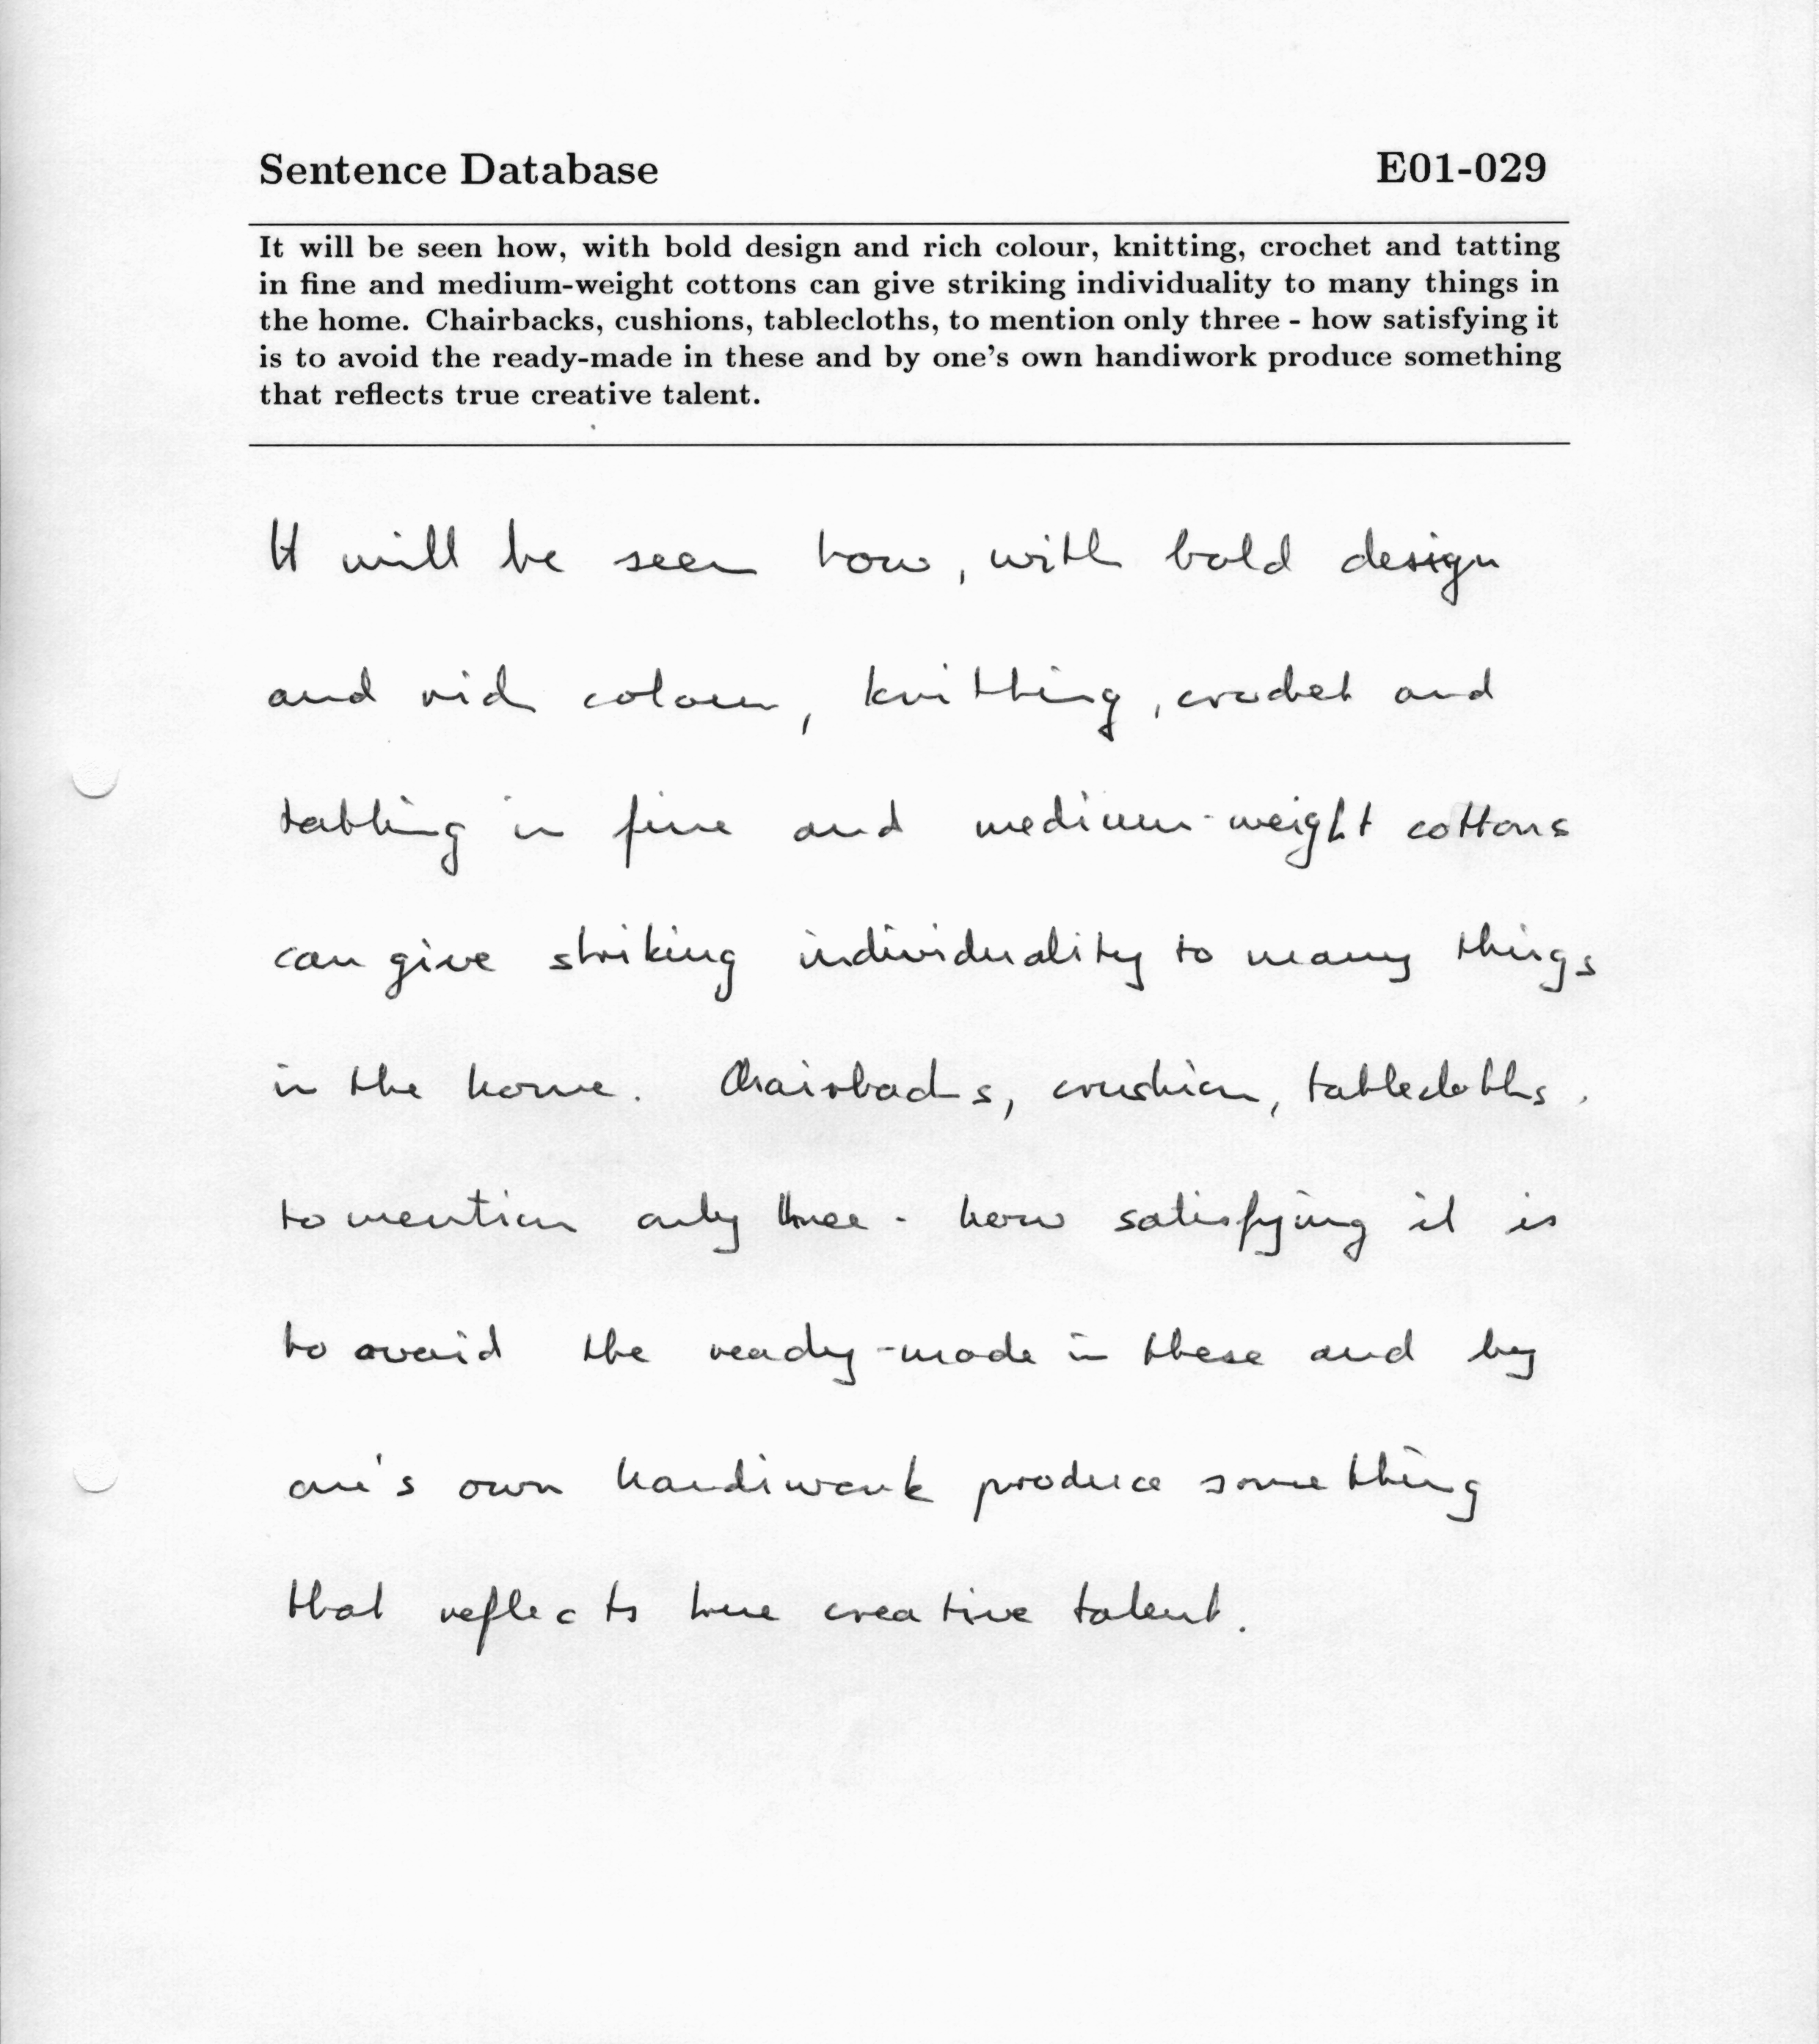 Sentence Database E01-029
It will be seen how, with bold design and rich colour, knitting, crochet and tatting
in fine and medium-weight cottons can give striking individuality to many things in
the home. Chairbacks, cushions, tablecloths, to mention only three - how satisfying it
is to avoid the ready-made in these and by one's own handiwork produce something
that reflects true creative talent.
It will be seen how, with bold design
and rich colour, knitting, crochet and
tatting in fine and medium-weight cottons
can give striking individuality to many things
in the home. Chairbacks, cushion, tablecloths,
to mention only three - how satisfying it is
to avoid the ready-made in these and by
one's own handiwork produce something
that reflects true creative talent.